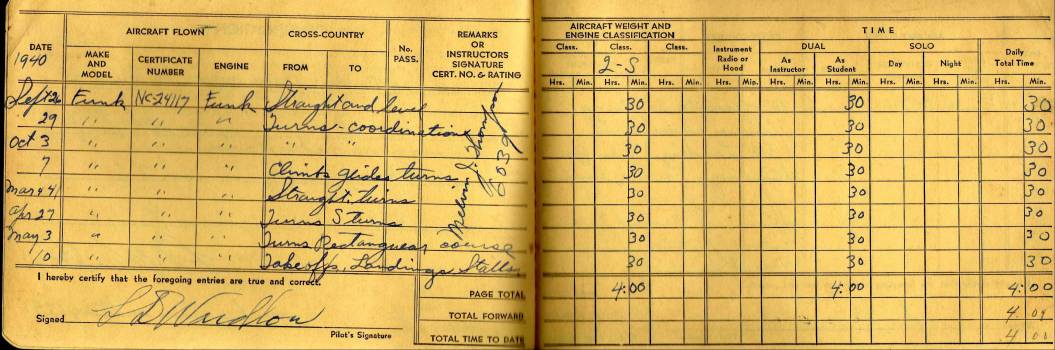 AIRCRAFT FLOWN CROSS-COUNTRY No. PASS. REMARKS OR INSTRUCTORS SIGNATURE CERT. NO. & RATING AIRCRAFT WEIGHT AND ENGINE CLASSIFICATION TIME
DATE 1940 MAKE AND MODEL CERTIFICATE NUMBER ENGINE FROM TO Class. Class. 2-S Class. Instrument Radio or Hood DUAL As Instructor As Student SOLO Day Night Daily Total Time
Hrs. Min. Hrs. Min. Hrs. Min. Hrs. Min. Hrs. Min. Hrs. Min. Hrs. Min. Hrs. Min. Hrs. Min.
Sept 26 Funk NC-24117 Funk Straight and level 30 30 30
29 " " " Turns - coordination 30 30 30
Oct 3 " " " " " 30 30 30
7 " " " Climbs glides turns 30 30 30
Mar 4 41 " " " Straight, turns 30 30 30
Apr 27 " " " Turns S turns 30 30 30
May 3 " " " Turns Rectangular course 30 30 30
10 " " " Takeoffs, Landings Stalls 30 30 30
Melvin J. Thompson
I hereby certify that the foregoing entries are true and correct.
PAGE TOTAL 4:00 4:00 4:00
Signed
Pilot's Signature
TOTAL FORWARD
TOTAL TIME TO DATE 4 00